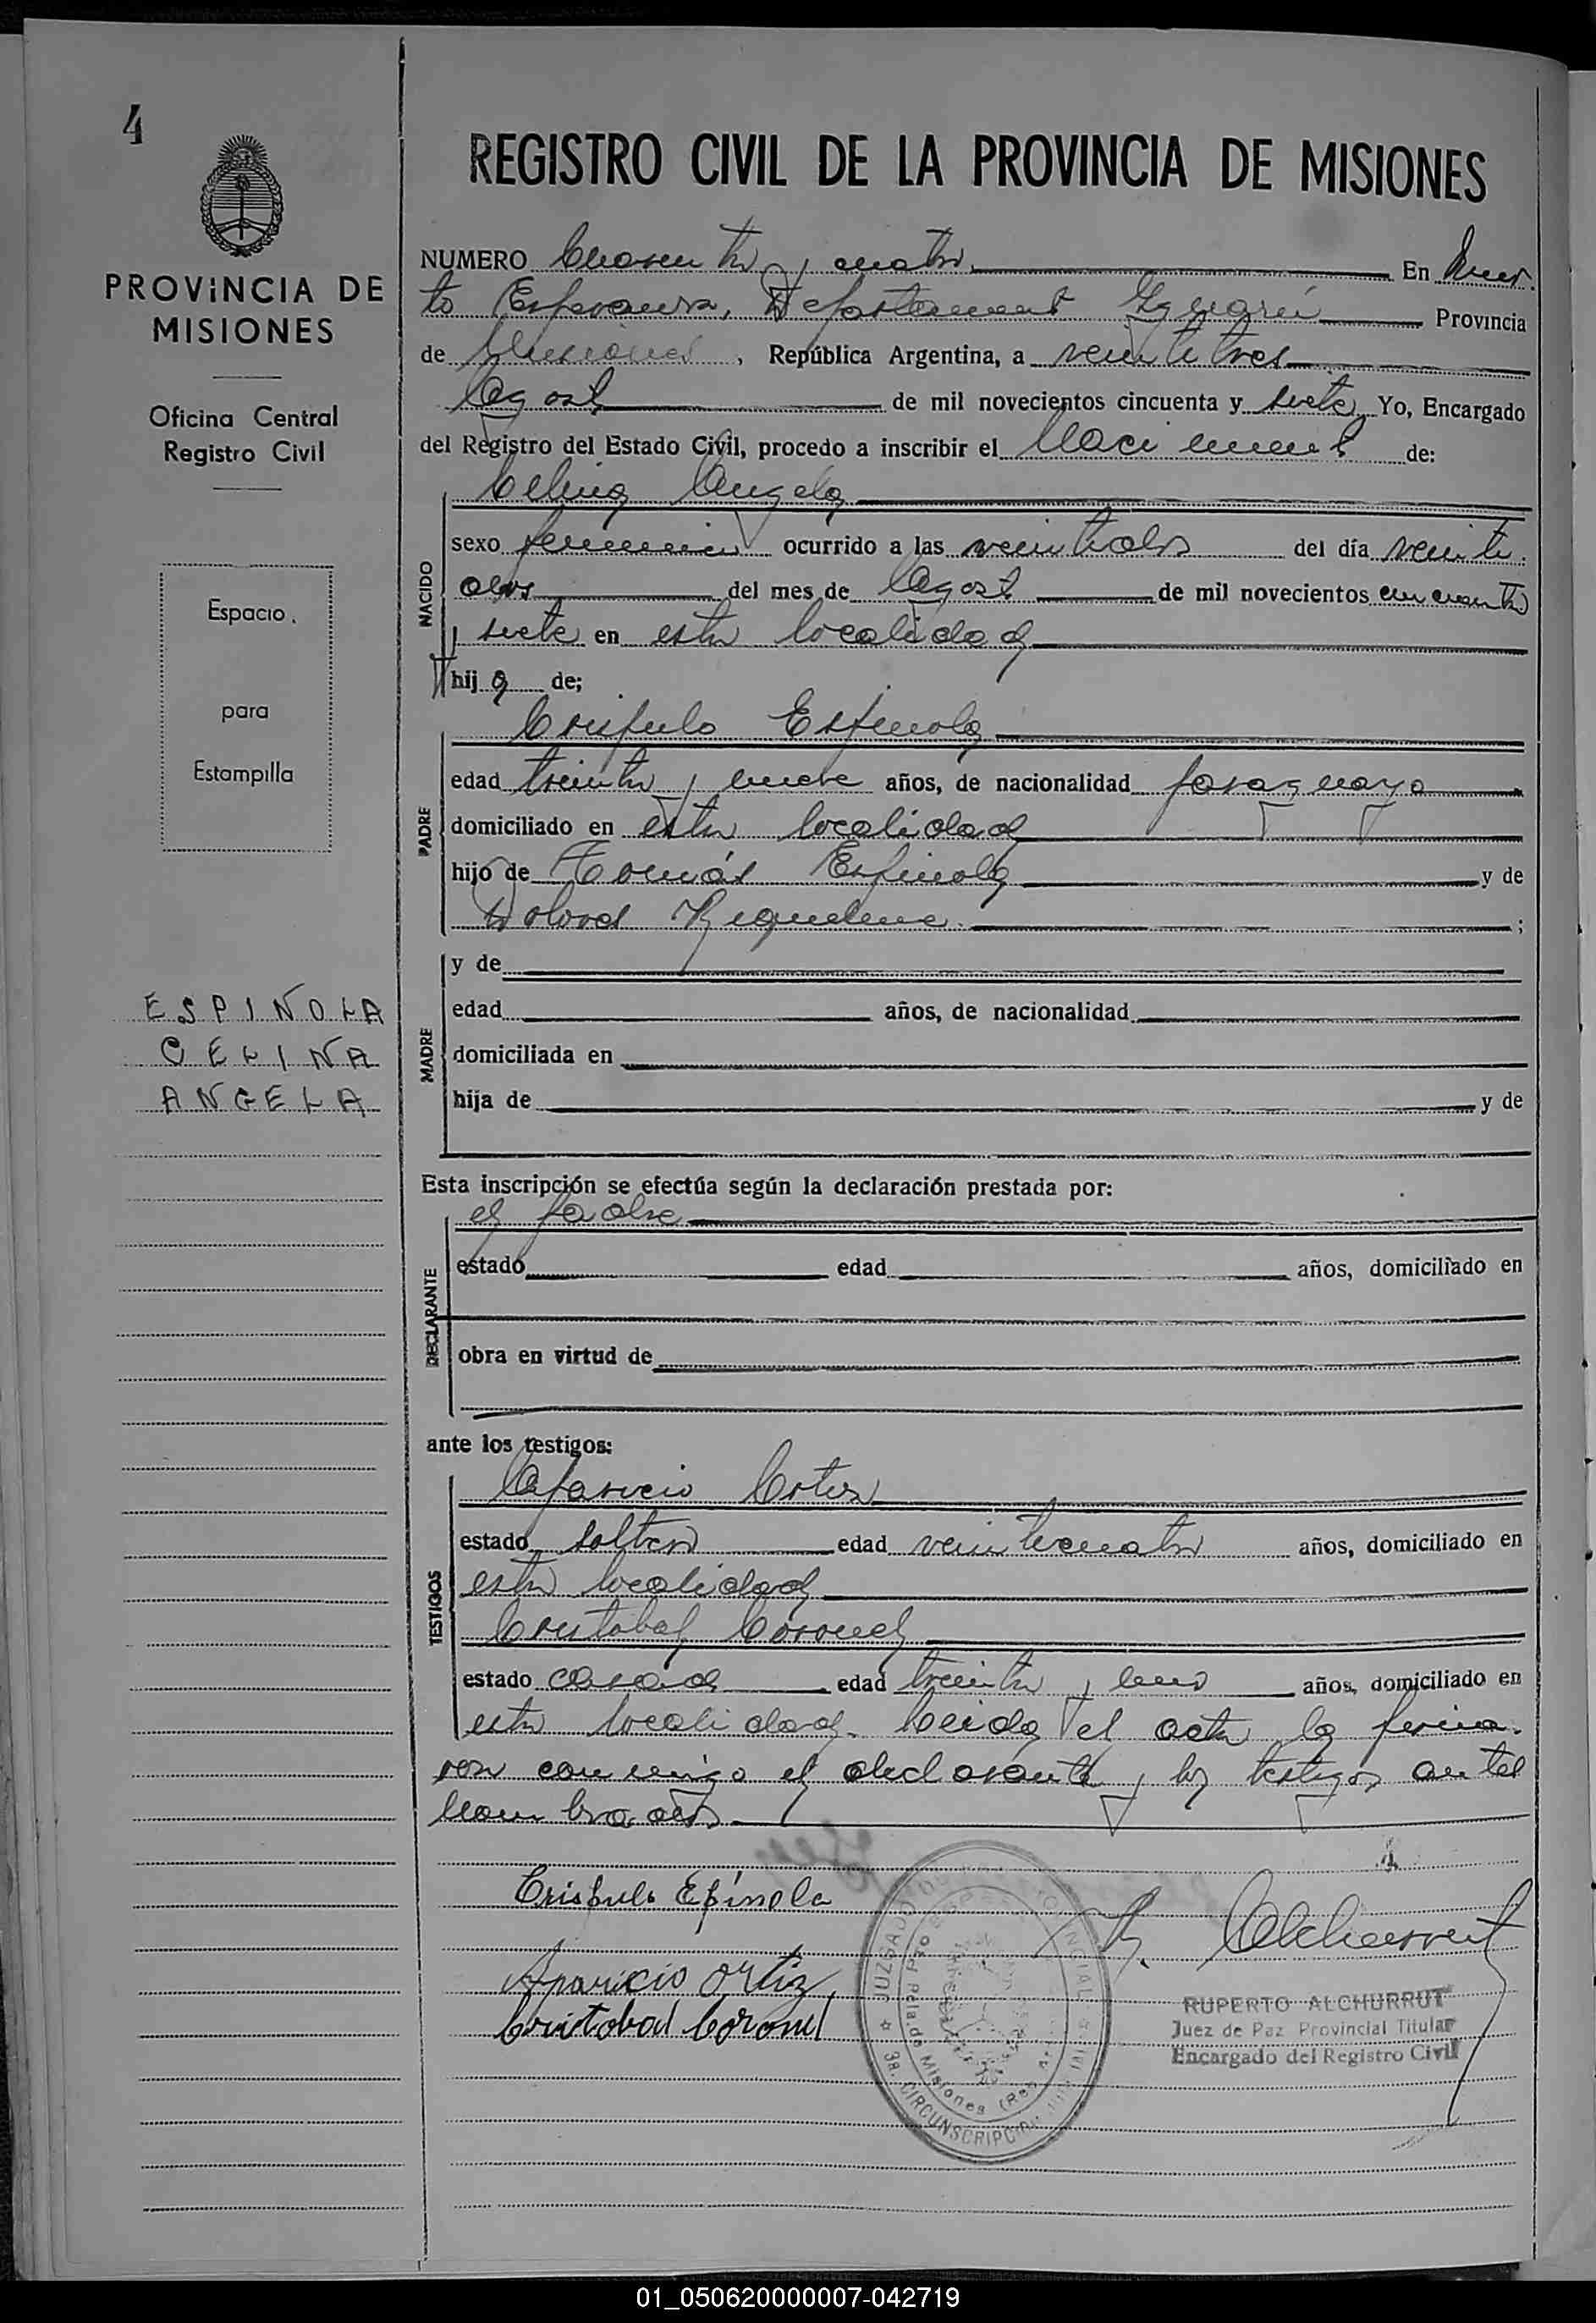 4
REGISTRO CIVIL DE LA PROVINCIA DE MISIONES
PROVINCIA DE
MISIONES
Oficina Central
Registro Civil
Espacio
para
Estampilla
ESPINOLA
CELINA
ANGELA
NUMERO Cuarenta y cuatro En Puer-
to Esperanza, Departamento Iguazú Provincia
de Misiones, República Argentina, a veintitres
Agosto de mil novecientos cincuenta y siete Yo, Encargado
del Registro del Estado Civil, procedo a inscribir el Nacimiento de:
Celina Angela
NACIDO
sexo femenino ocurrido a las veintidos del día veinti
dos del mes de Agosto de mil novecientos cincuenta
y siete en esta localidad
hija de;
PADRE
Crispulo Espinola
edad treinta y nueve años, de nacionalidad paraguaya
domiciliado en esta localidad
hijo de Tomás Espinola y de
Dolores Riquelme ;
MADRE
y de
edad años, de nacionalidad
domiciliada en
hija de y de
Esta inscripción se efectúa según la declaración prestada por:
DECLARANTE
el padre
estado edad años, domiciliado en
obra en virtud de
ante los testigos:
TESTIGOS
Aparicio Ortiz
estado soltero edad veinticuatro años, domiciliado en
esta localidad
Cristobal Coronel
estado casado edad treinta y uno años, domiciliado en
esta localidad. Leida el acta la firma-
ron conmigo el declarante y los testigos antes
nombrados
Crispulo Epínola
Aparicio Ortiz
Cristobal Coronel
R. Alchurrut
RUPERTO ALCHURRUT
Juez de Paz Provincial Titular
Encargado del Registro Civil
JUZGADO DE PAZ PROVINCIAL
3a. CIRCUNSCRIPCION
Pcia. de Misiones (Rep. Ar
01_050620000007-042719